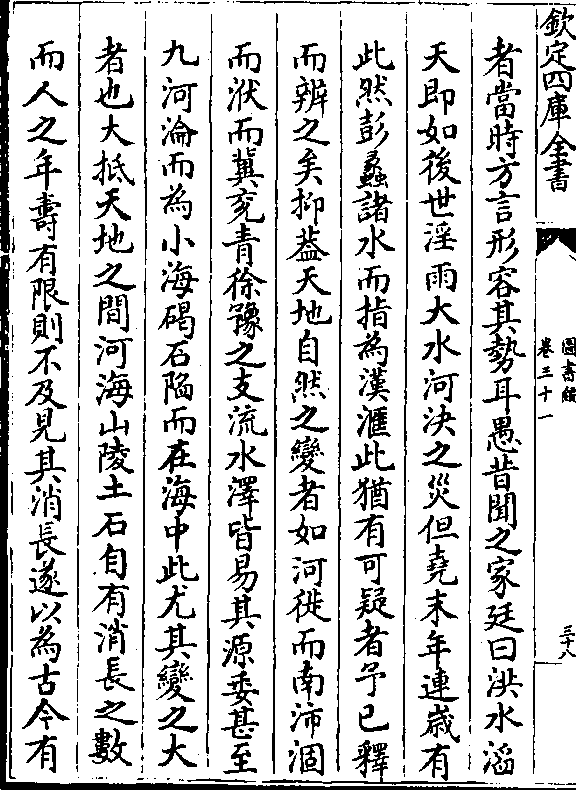 欽定四庫全書
圖書編
卷三十一
三十八
者當時方言形容其勢耳愚昔聞之家廷曰洪水滔
天即如後世淫雨大水河決之災但堯末年連歳有
此然彭蠡諸水而指為漢滙此猶有可疑者予已釋
而辨之矣抑葢天地自然之變者如河徙而南沛涸
而洑而冀兖青徐豫之支流水澤皆易其源委甚至
九河淪而為小海碣石陥而在海中此尤其變之大
者也大抵天地之間河海山陵土石自有消長之數
而人之年壽有限則不及見其消長遂以為古今有